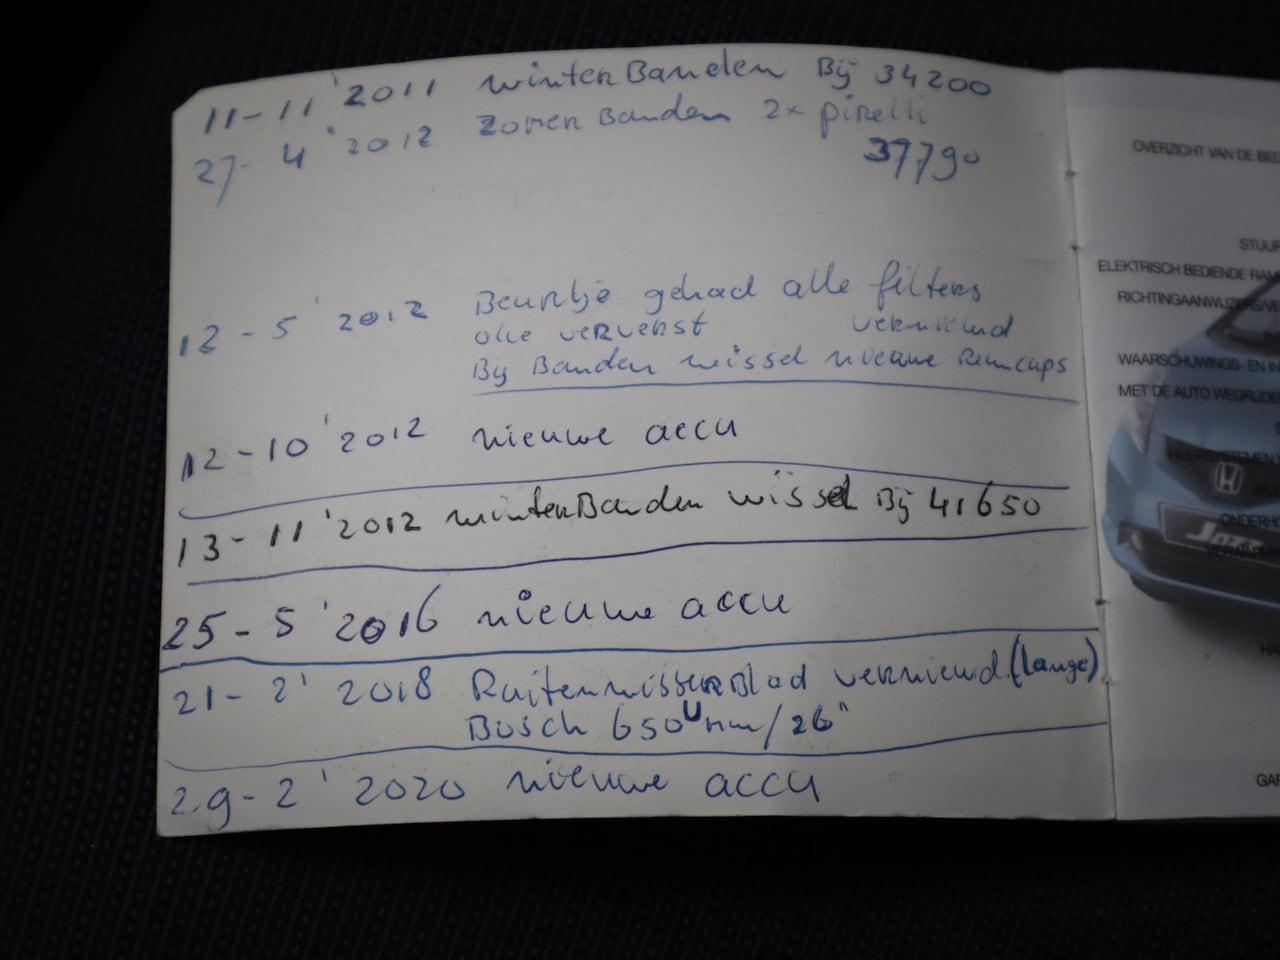 11-11 '2011 winterBanden Bij 34200
27-4 '2012 zomer Banden 2x pirelli
37790
12-5 '2012 Beurtje gehad alle filters
olie ververst vernieuwd
Bij Banden wissel nieuwe Remcaps
12-10 '2012 nieuwe accu
13-11 '2012 winterBanden wissel Bij 41650
25-5 '2016 nieuwe accu
21-2' 2018 RuitenwisserBlad vernieuwd. (lange)
Bosch 650 mm/26"
29-2' 2020 nieuwe accu
OVERZICHT VAN DE BED
STUUR
ELEKTRISCH BEDIENDE RAM
RICHTINGAANWIJZERS/VE
WAARSCHUWINGS- EN IN
MET DE AUTO WEGRIJDE
HULPSYSTEMEN
Jazz
ONDERH
VERWARM
HA
GAR